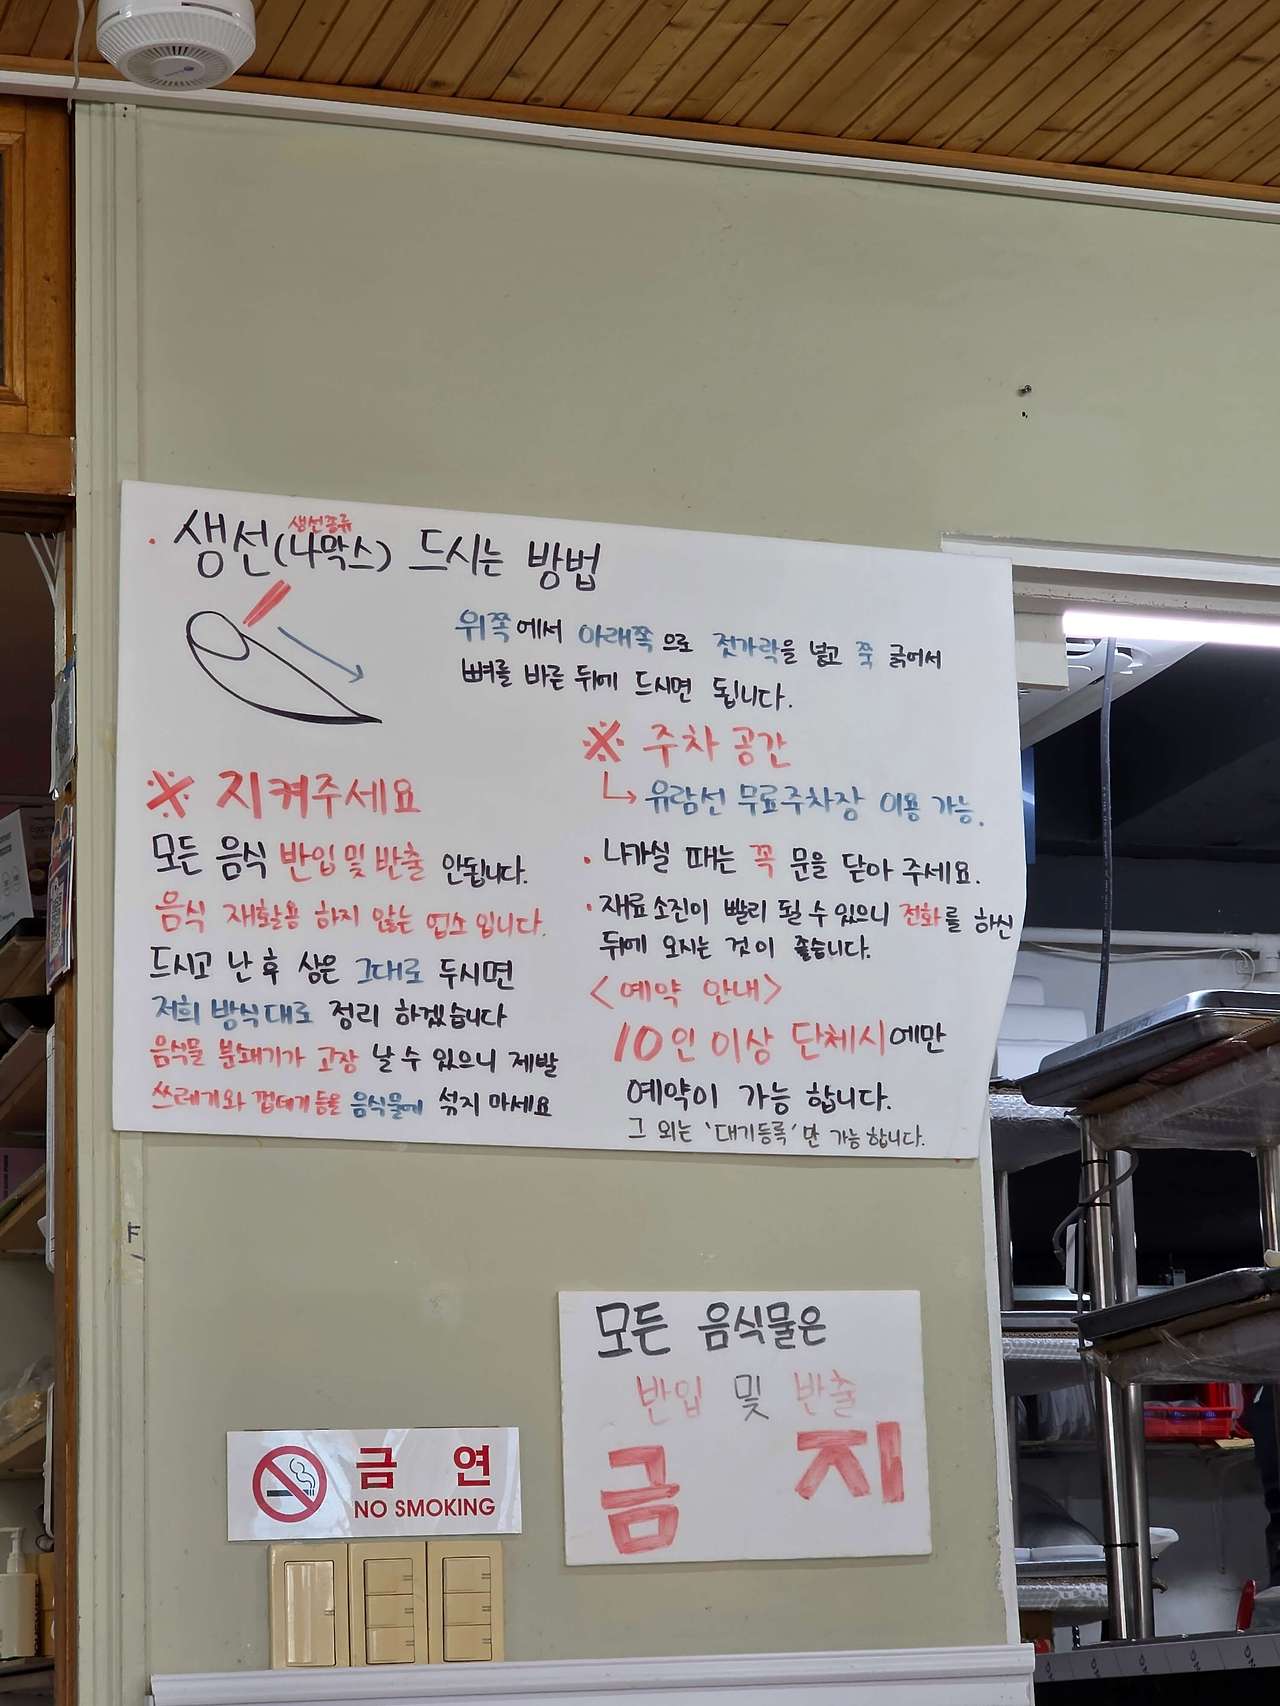 · 생선(나막스) 드시는 방법
생선종류
위쪽에서 아래쪽으로 젓가락을 넣고 쭉 긁어서
뼈를 바른 뒤에 드시면 됩니다.
※ 지켜주세요
모든 음식 반입 및 반출 안됩니다.
음식 재활용 하지 않는 업소입니다.
드시고 난 후 상은 그대로 두시면
저희 방식대로 정리 하겠습니다
음식물 분쇄기가 고장 날 수 있으니 제발
쓰레기와 껍데기등을 음식물에 섞지 마세요
※ 주차 공간
↳ 유람선 무료주차장 이용 가능.
· 나가실 때는 꼭 문을 닫아 주세요.
· 재료소진이 빨리 될 수 있으니 전화를 하신
뒤에 오시는 것이 좋습니다.
<예약 안내>
10인 이상 단체시에만
예약이 가능 합니다.
그 외는 '대기등록'만 가능합니다.
모든 음식물은
반입 및 반출
금지
금 연
NO SMOKING